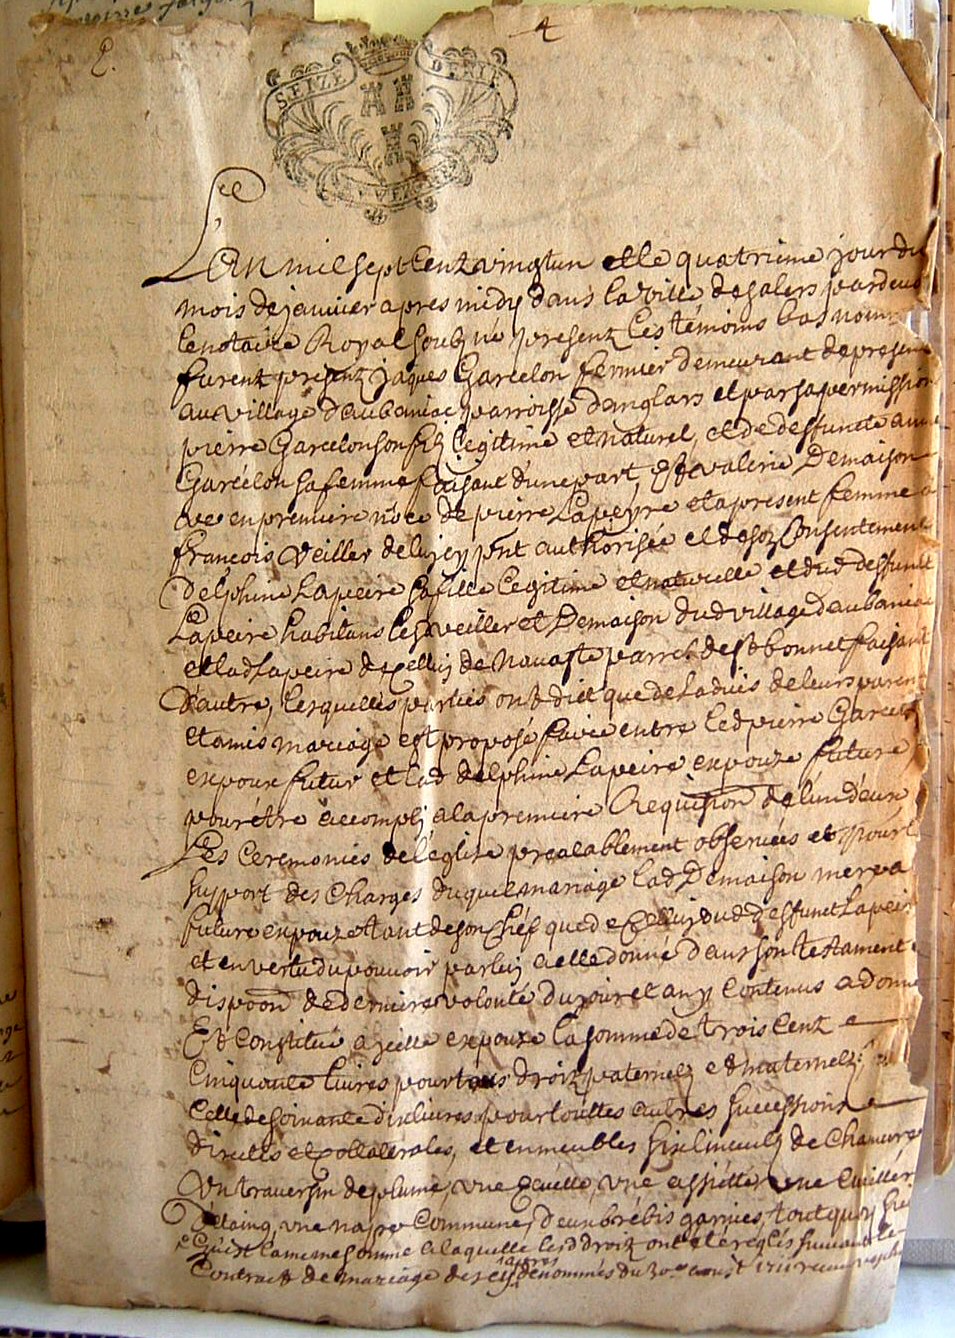 4
SEIZE DENIE
L'an mil sept cent vingtun et le quatrieme jour du
mois de janvier apres midy dans la ville de salers pardevant
le notaire Royal soubzné present les témoins bas nommes
furent present jaques Garcelon fermier demeurant de present
au village daubaniac parroisse danglars et par sa permission
pierre Garcelon son filz legitime et naturel, et de deffuncte anne
Garcélon sa femme faisant d'une part, Et valerie Demaison
ve en premiere noce de pierre Lapeyre et a present femme a
françois Veiller de luy jcy pnt authorisée et de son Consentement
Delphine Lapeire sa fille legitime et naturelle et dud deffunct
Lapeire habitans lesd veiller et Demaison dud village daubaniac
et lad Lapeire de celluy de Navaste parre. de St bonnet faisant
d'autre, lesquelles parties ont dict que de Ladvis de leurs parens
et amis mariage est proposé faire entre led pierre Garcelon
expoux futur et lad delphine Lapeire expouze future
pour étre accomply a la premiere Requision de l'un d'eux
Les Ceremonies de l'eglise prealablement observées et Pour le
support des Charges duquel mariage lad Demaison mere a
future expouze tant de son Chéf que de Celluy dud deffunct Lapeire
et en vertu du pouvoir par luy a elle donné dans son testament
dispoon de derniere volonté du jour et an y Contenus a donné
Et Constitué a jcelle expouze la somme de trois Cent
Cinquante livres pour tous droitz paternelz et maternelz
Celle de soixante dix livres pour touttes autres successions
directes et Collaterales, et en meubles six linceulz de Chanvre
Un traversin de plume, vne Ecuelle, vne assiette vne Cuillér
D'étaing, vne nappe Commune, deux brébis garnies, tout quoy
quest la meme somme a laquelle lesd droitz ont eté réglés suivant le
Contract de mariage des
apres
denommés du 30e aoust 1711 receu